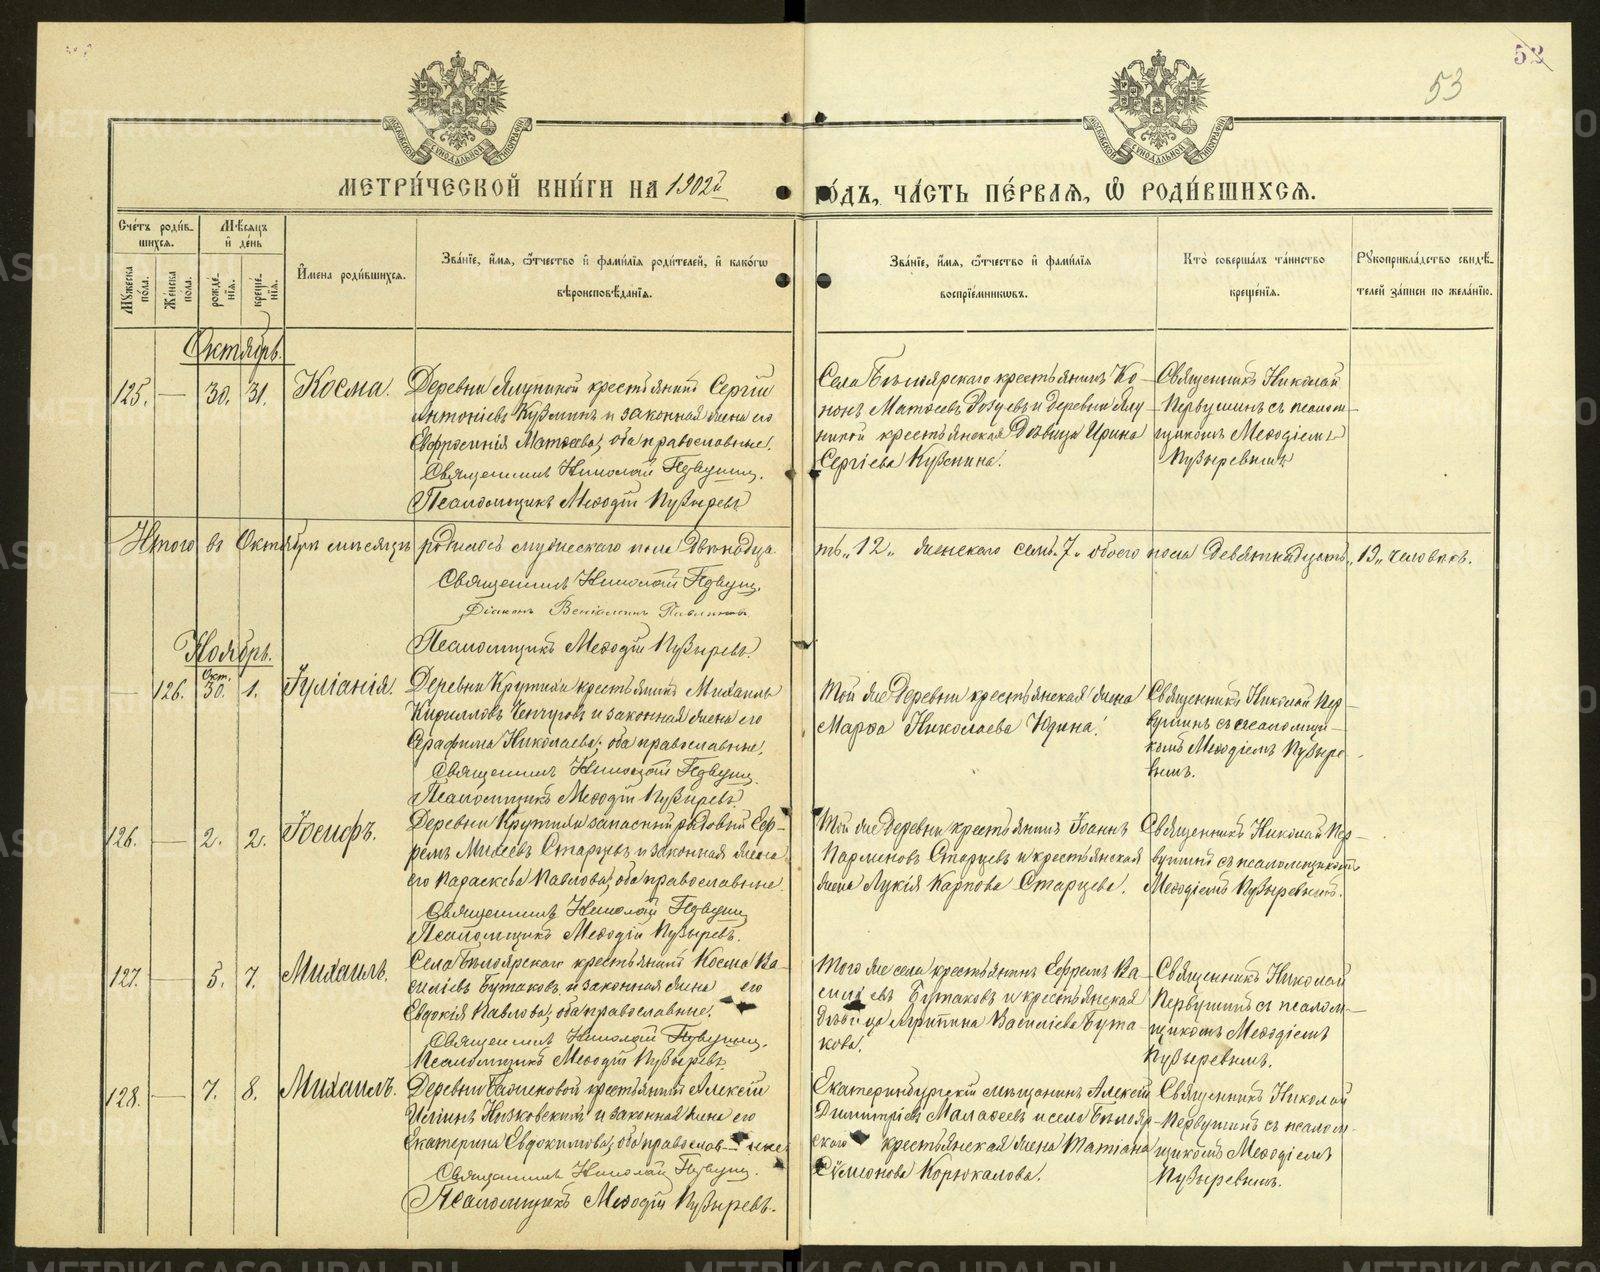 53
52
МОСКОВСКОЙ СУНОДАЛЬНОЙ ТИПОГРАФІИ
МОСКОВСКОЙ СУНОДАЛЬНОЙ ТИПОГРАФІИ
МЕТРИ́ЧЕСКОЙ КНИ́ГИ НА 1902й
ГО́ДЪ, ЧА́СТЬ ПЕ́РВАѦ, Ѽ РОДИ́ВШИХСѦ.
Сче́тъ роди́в-
шихся.
Мѣ́сяцъ
и́ де́нь
Му́жеска по́ла.
Же́нска по́ла.
рожде́-
нїя.
креще́-
нїя.
И҆мена роди́вшихся.
Зва́нїе, и҆́мя, ѻ҆́тчество и҆ фами́лїя роди́телей, и҆ како́гѡ
вѣроисповѣ́данїя.
Зва́нїе, и҆́мя, ѻ҆́тчество и҆ фами́лїя
воспрїе́мникѡвъ.
Кто̀ соверша́лъ та́инство
креще́нїя.
Рꙋкоприкла́дство свидѣ́-
телей за́писи по жела́нїю.
Октябрь.
125. — 30. 31. Косма.
Деревни Ялуниной крестьянинъ Сергій
Антоніевъ Кузминъ и законная жена его
Евфросинія Матѳеева; оба православные.
Священникъ Николай Первушин.
Псаломщикъ Меѳодій Пузыревъ
Села Бѣлоярскаго крестьянинъ Ко-
нонъ Матѳеевъ и деревни Ялу-
ниной крестьянская дѣвица Ирина
Сергіева Кузмина.
Священникъ Николай
Первушинъ съ псалом-
щикомъ Меѳодіемъ
Пузыревымъ
Итого въ Октябрѣ мѣсяцѣ родилось мужескаго пола двѣнадца-
ть „12„ женскаго семь „7„ обоего пола девятнадцать „19„ человѣкъ.
Священникъ Николай Первушин.
Діаконъ Веніаминъ
Псаломщикъ Меѳодій Пузыревъ.
Ноябрь.
— 126. Окт. 30. 1. Іуліанія.
Деревни Крутихи крестьянинъ Михаилъ
Кирилловъ Ченчуговъ и законная жена его
Серафима Николаева; оба православные.
Священникъ Николай Первушин.
Псаломщикъ Меѳодій Пузыревъ.
Той же деревни крестьянская жена
Марѳа Николаева Юдина.
Священникъ Николай Пер-
вушинъ съ псаломщи-
комъ Меѳодіемъ Пузыре-
вымъ.
126. — 2. 2. Іосифъ.
Деревни Крутихи запасный рядовый Еф-
ремъ Михеевъ Старцевъ и законная жена
его Параскева Павлова; оба православные.
Священникъ Николай Первушин
Псаломщикъ Меѳодій Пузыревъ.
Той же деревни крестьянинъ Іоаннъ
Парменовъ Старцевъ и крестьянская
жена Лукія Карпова Старцева.
Священникъ Николай Пер-
вушинъ съ псаломщикомъ
Меѳодіемъ Пузыревымъ.
127. — 5. 7. Михаилъ.
Села Бѣлоярскаго крестьянинъ Косма Ва-
силіевъ Бутаковъ и законная жена его
Евдокія Павлова; оба православные.
Священникъ Николай Первушин.
Псаломщикъ Меѳодій Пузыревъ.
Того же села крестьянинъ Ефремъ Ва-
силіевъ Бутаковъ и крестьянская
дѣвица Агрипина Василіева Бута-
кова.
Священникъ Николай
Первушинъ съ псалом-
щикомъ Меѳодіемъ
Пузыревымъ.
128. — 7. 8. Михаилъ.
Деревни Баженовой крестьянинъ Алексій
Иліинъ Низковскихъ и законная жена его
Екатерина Евдокимова; оба православные
Священникъ Николай Первушин.
Псаломщикъ Меѳодій Пузыревъ.
Екатеринбургскій мѣщанинъ Алексій
Димитріевъ Малаѳеевъ и села Бѣлояр-
скаго крестьянская жена Татіана
Сѵмеонова Корюкалова.
Священникъ Николай
Первушинъ съ псалом-
щикомъ Меѳодіемъ
Пузыревымъ.
METRIKI.GASO-URAL.RU
METRIKI.GASO-URAL.RU